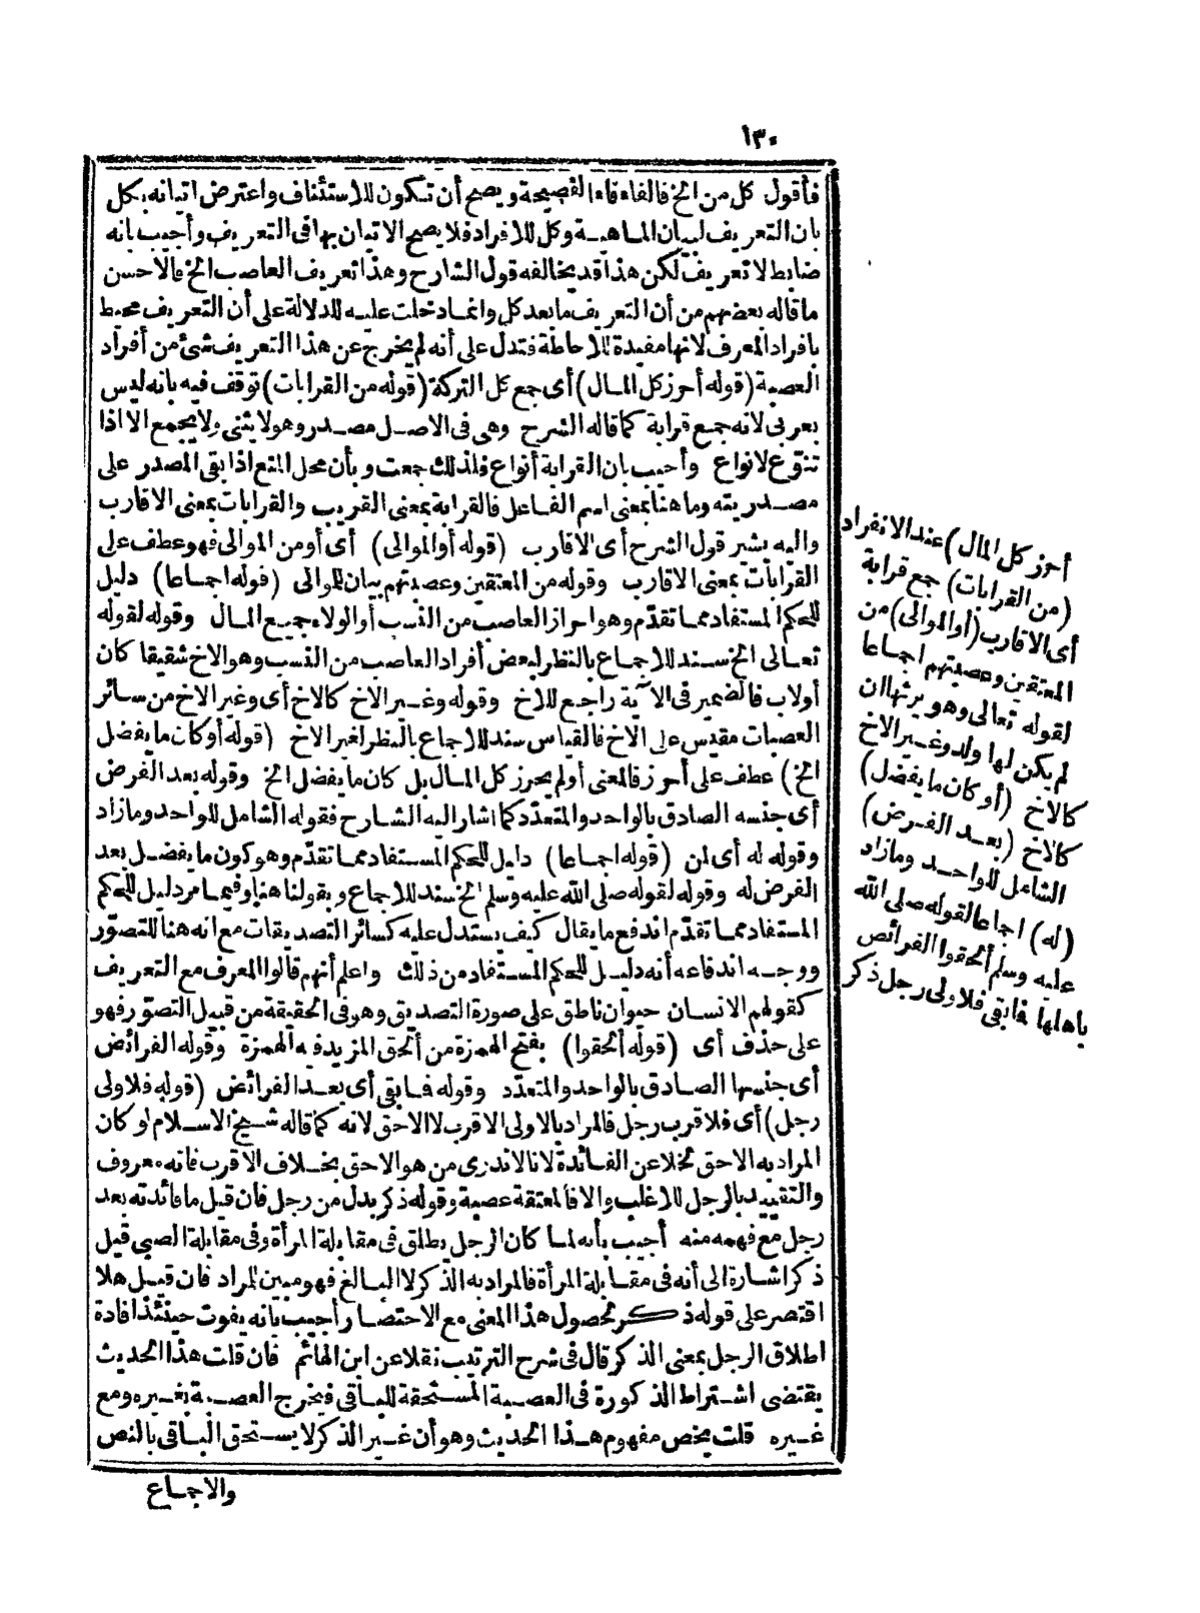 ١٣٠
فأقول كل من الخ فالفاء فاء الفصيحة ويصح أن تكون للاستئناف واعترض اتيانه بكل
بان التعريف لبيان الماهية وكل للافراد فلا يصح الاتيان بها فى التعريف وأجيب بانه
ضابط لا تعريف لكن هذا قد يخالفه قول الشارح وهذا تعريف العاصب الخ فالاحسن
ما قاله بعضهم من أن التعريف ما بعد كل وانما دخلت عليه للدلالة على أن التعريف محيط
بافراد المعرف لانها مفيدة للاحاطة فتدل على أنه لم يخرج عن هذا التعريف شئ من أفراد
العصبة (قوله أحرز كل المال) أى جمع كل التركة (قوله من القرابات) توقف فيه بانه ليس
بعربى لانه جمع قرابة كما قاله الشرح وهى فى الاصل مصدر وهو لا يثنى ولا يجمع الا اذا
تنوّع لانواع وأجيب بان القرابة أنواع فلذلك جمعت وبأن محل المنع اذا بقى المصدر على
مصدريته وما هنا بمعنى اسم الفاعل فالقرابة بمعنى القريب والقرابات بمعنى الاقارب
واليه يشير قول الشرح أى الاقارب (قوله أو الموالى) أى أو من الموالى فهو عطف على
القرابات بمعنى الاقارب وقوله من المعتقين وعصبتهم بيان للموالى (قوله اجماعا) دليل
للحكم المستفاد مما تقدّم وهو احراز العاصب من النسب أو الولاء جميع المال وقوله لقوله
تعالى الخ سند للاجماع بالنظر لبعض أفراد العاصب من النسب وهو الاخ شقيقا كان
أولاب فالضمير فى الآية راجع للاخ وقوله وغير الاخ كالاخ أى وغير الاخ من سائر
العصبات مقيس على الاخ فالقياس سند للاجماع بالنظر لغير الاخ (قوله أو كان ما يفضل
الخ) عطف على أحرز فالمعنى أو لم يحرز كل المال بل كان ما يفضل الخ وقوله بعد الفرض
أى جنسه الصادق بالواحد والمتعدّد كما اشار اليه الشارح فقوله الشامل للواحد وما زاد
وقوله له أى لمن (قوله اجماعا) دليل للحكم المستفاد مما تقدّم وهو كون ما يفضل بعد
الفرض له وقوله لقوله صلى الله عليه وسلم الخ سند للاجماع وبقولنا هنا وفيما مر دليل للحكم
المستفاد مما تقدّم اندفع ما يقال كيف يستدل عليه كسائر التصديقات مع انه هنا للتصوّر
ووجه اندفاعه أنه دليل للحكم المستفاد من ذلك واعلم أنهم قالوا المعرف مع التعريف
كقولهم الانسان حيوان ناطق على صورة التصديق وهو فى الحقيقة من قبيل التصوّر فهو
على حذف أى (قوله ألحقوا) بفتح الهمزة من ألحق المزيد فيه الهمزة وقوله الفرائض
أى جنسها الصادق بالواحد والمتعدّد وقوله فما بقى أى بعد الفرائض (قوله فلاولى
رجل) أى فلاقرب رجل فالمراد بالاولى الاقرب لا الاحق لانه كما قاله شيخ الاسلام لو كان
المراد به الاحق لخلا عن الفائدة لانا لا ندرى من هو الاحق بخلاف الاقرب فانه معروف
والتقييد بالرجل للاغلب والا فالمعتقة عصبة وقوله ذكر بدل من رجل فان قيل ما فائدته بعد
رجل مع فهمه منه أجيب بأنه لما كان الرجل يطلق فى مقابلة المرأة وفى مقابلة الصبى قيل
ذكر اشارة الى أنه فى مقابلة المرأة فالمراد به الذكر لا البالغ فهو مبين للمراد فان قيل هلا
اقتصر على قوله ذكر لحصول هذا المعنى مع الاختصار أجيب بانه يفوت حينئذ افادة
اطلاق الرجل بمعنى الذكر قال فى شرح الترتيب نقلا عن ابن الهائم فان قلت هذا الحديث
يقتضى اشتراط الذكورة فى العصبة المستحقة للباقى فيخرج العصبة بغيره ومع
غيره قلت يخص مفهوم هذا الحديث وهو أن غير الذكر لا يستحق الباقى بالنص
والاجماع
أحرز كل المال) عند الانفراد
(من القرابات) جمع قرابة
أى الاقارب (أو الموالى) من
المعتقين وعصبتهم اجماعا
لقوله تعالى وهو يرثها ان
لم يكن لها ولد وغير الاخ
كالاخ (أو كان ما يفضل)
كالاخ (بعد الفرض)
الشامل للواحد وما زاد
(له) اجماعا لقوله صلى الله
عليه وسلم ألحقوا الفرائض
باهلها فما بقى فلاولى رجل ذكر